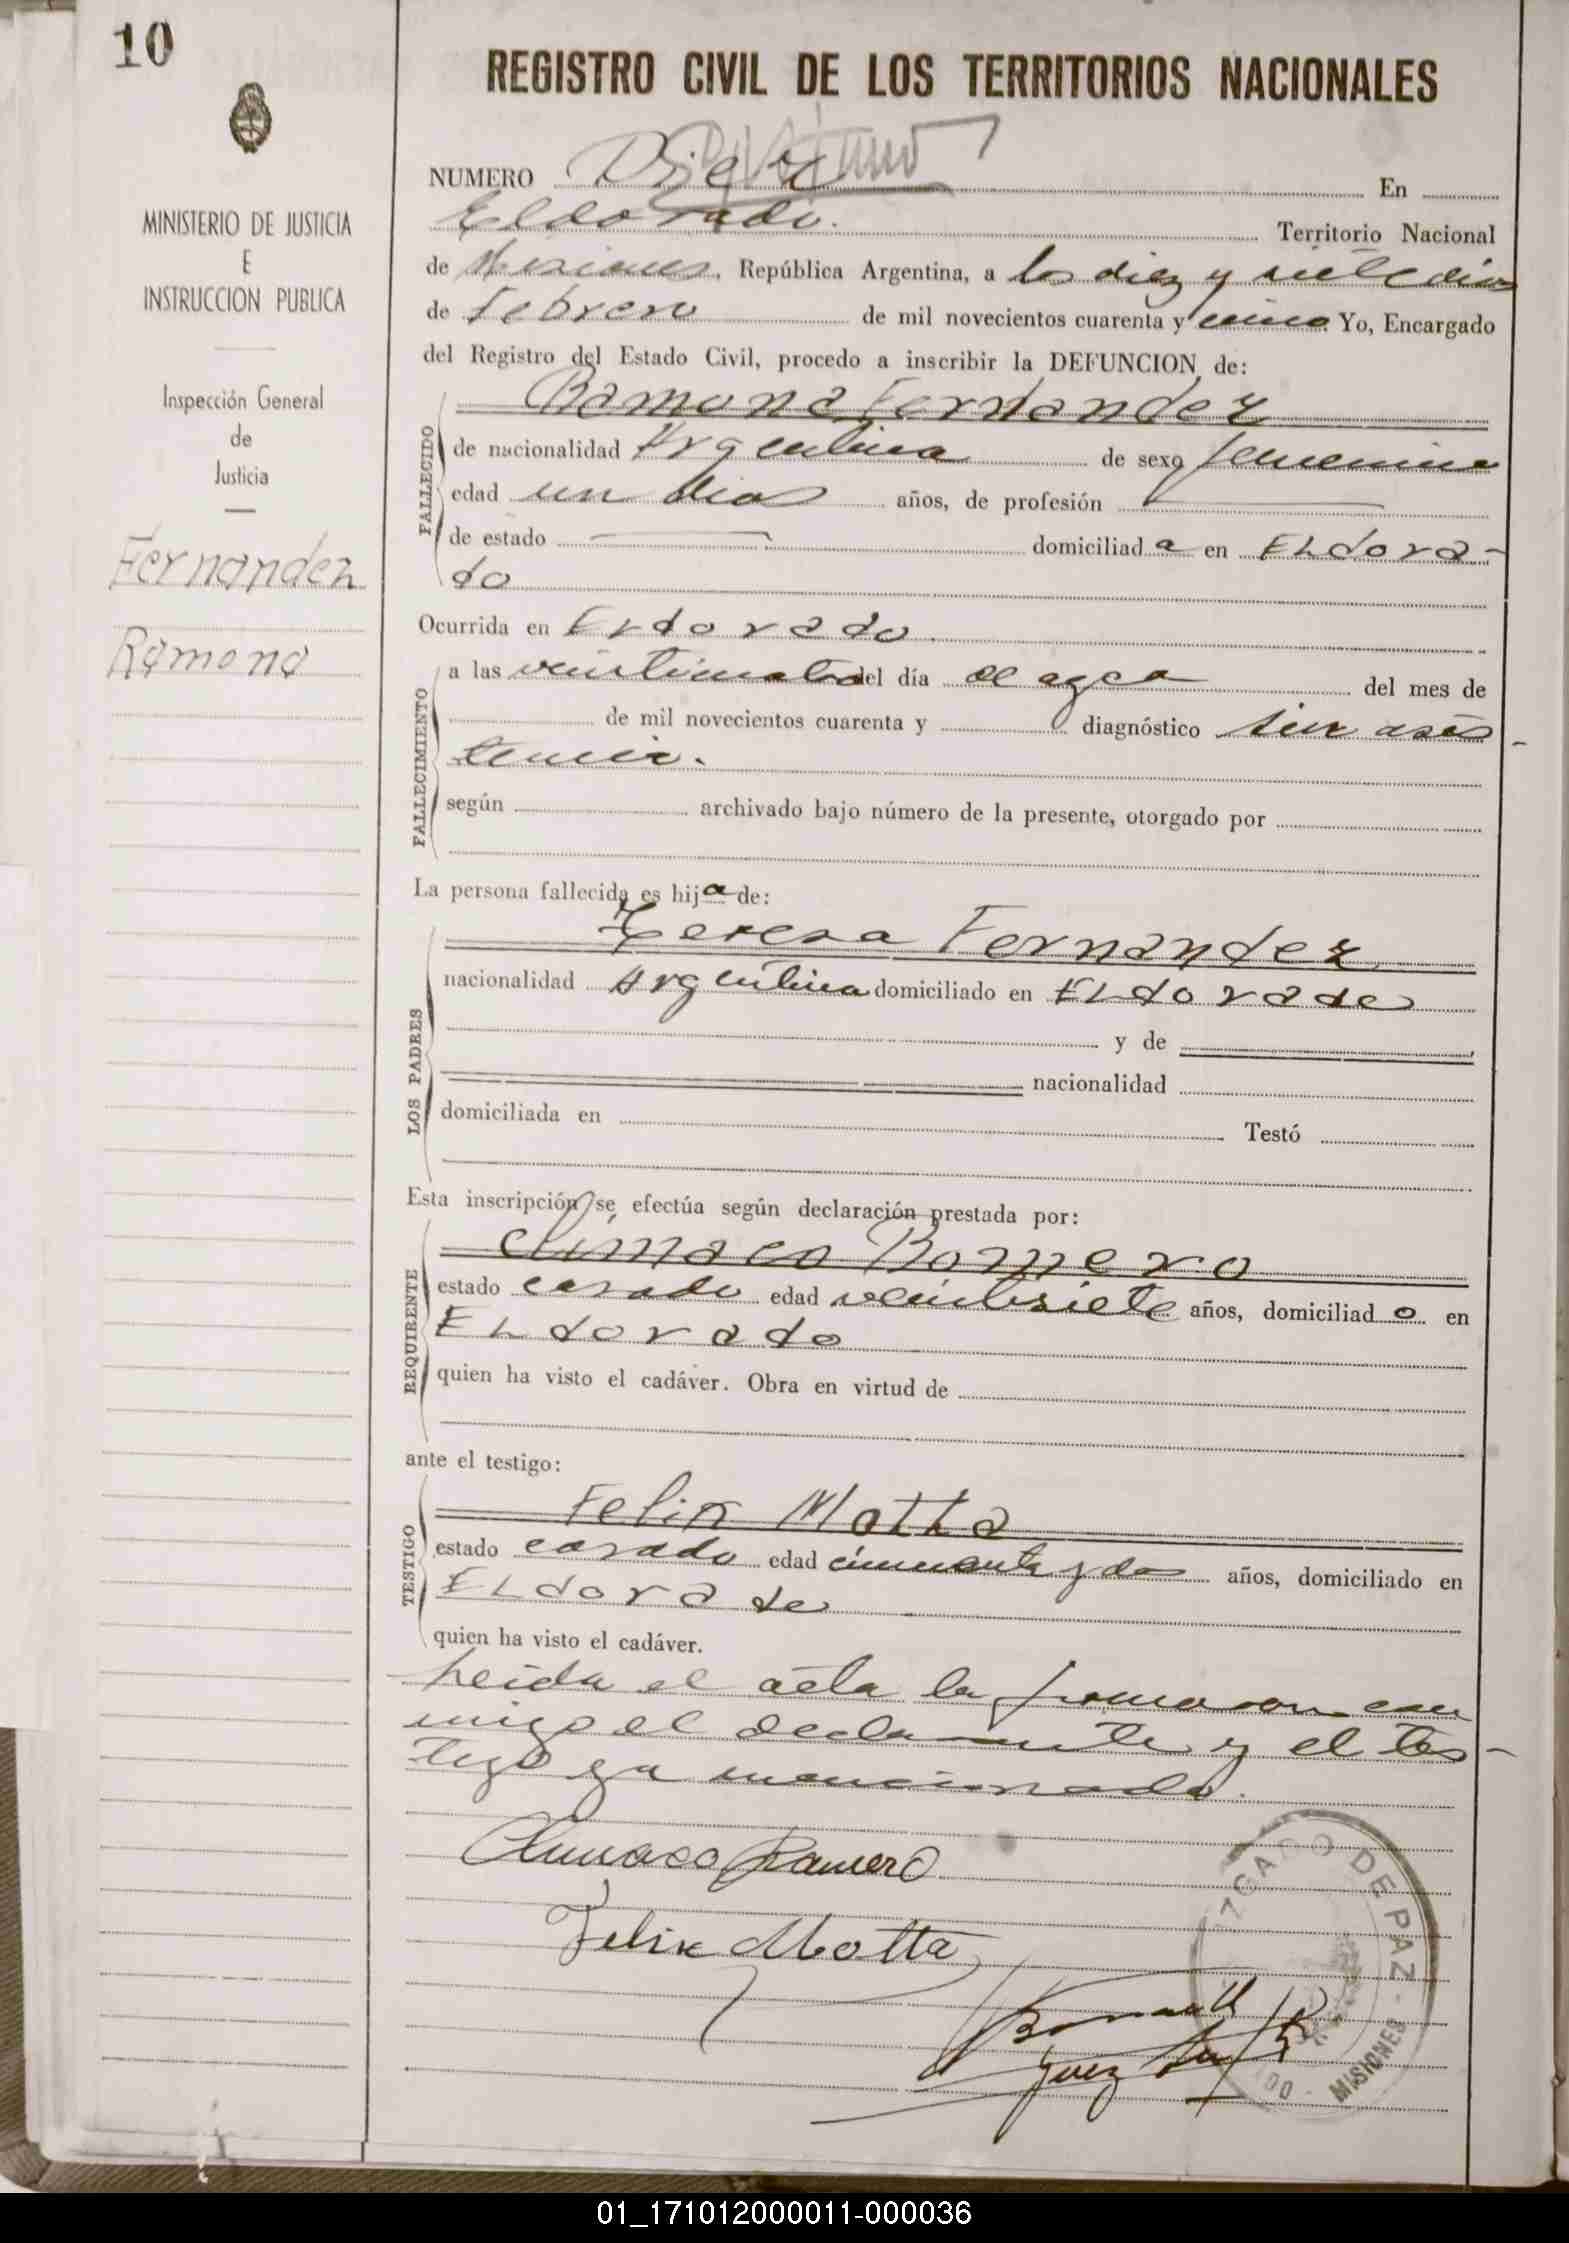 10
MINISTERIO DE JUSTICIA
E
INSTRUCCION PUBLICA
Inspección General
de
Justicia
Fernandez
Ramona
REGISTRO CIVIL DE LOS TERRITORIOS NACIONALES
NUMERO Diez En
Eldorado. Territorio Nacional
de Misiones, República Argentina, a los diez y siete dias
de Febrero de mil novecientos cuarenta y cinco Yo, Encargado
del Registro del Estado Civil, procedo a inscribir la DEFUNCION de:
Ramona Fernandez
FALLECIDO
de nacionalidad Argentina de sexo femenino
edad un dias años, de profesión
de estado domiciliad a en Eldora-
do
Ocurrida en Eldorado.
FALLECIMIENTO
a las del día de ayer del mes de
de mil novecientos cuarenta y diagnóstico sin asis-
tencia.
según archivado bajo número de la presente, otorgado por
La persona fallecida es hija de:
LOS PADRES
Teresa Fernandez
nacionalidad Argentina domiciliado en Eldorado
y de
nacionalidad
domiciliada en Testó
Esta inscripción se efectúa según declaración prestada por:
REQUIRENTE
Climaco Romero
estado casado edad veintisiete años, domiciliad o en
Eldorado
quien ha visto el cadáver. Obra en virtud de
ante el testigo:
TESTIGO
Felix Motta
estado casado edad cincuenta y dos años, domiciliado en
Eldorado
quien ha visto el cadáver.
Leida el acta la firmaron con
migo el declarante y el tes-
tigo ya mencionado.
Climaco Romero
Felix Motta
Juez
JUZGADO DE PAZ - MISIONES
01_171012000011-000036